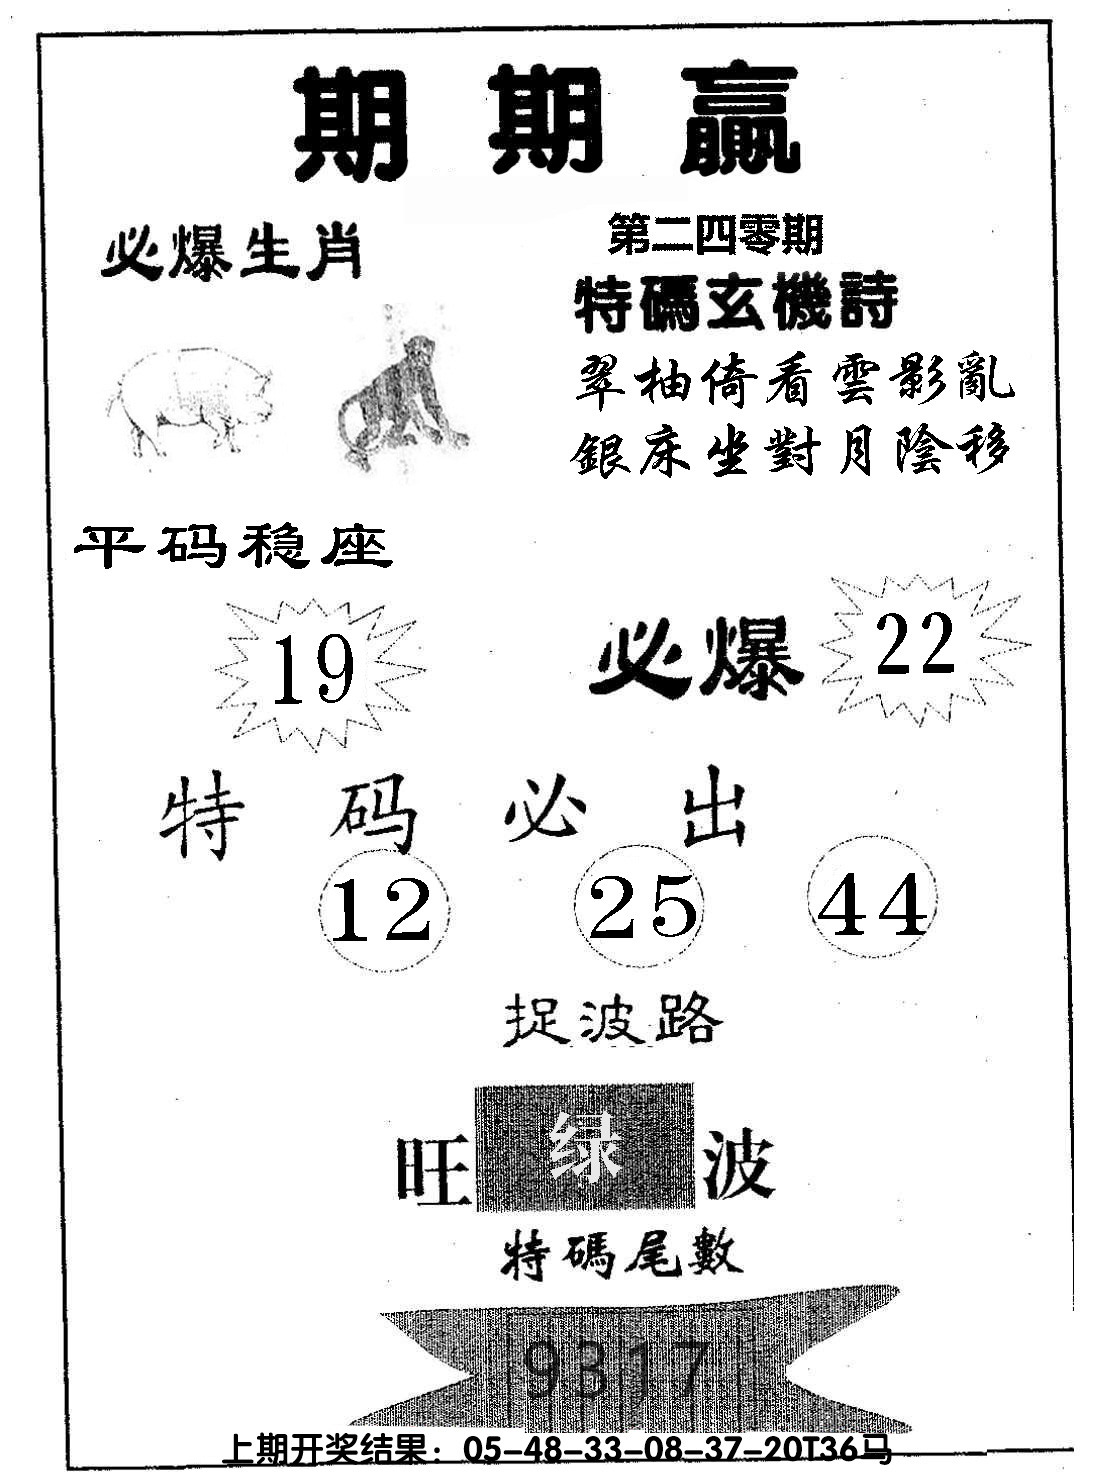 期期赢
必爆生肖
第二四零期
特碼玄機詩
翠柚倚看雲影亂
銀床坐對月陰移
平码稳座
19
必爆
22
特码必出
12 25 44
捉波路
旺绿波
特碼尾數
9317
上期开奖结果：05-48-33-08-37-20T36马